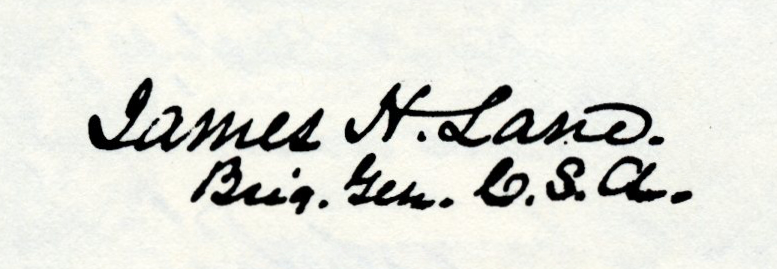 James H. Lane.
Brig. Gen. C.S.A.